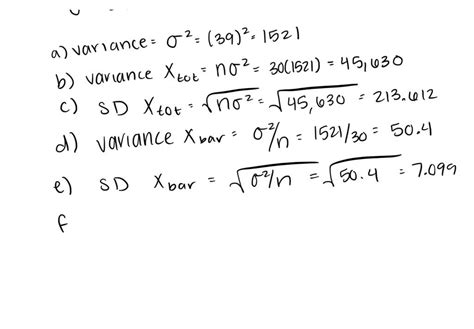 a) variance = σ² = (39)² = 1521
b) variance Xtot = nσ² = 30(1521) = 45,630
c) SD Xtot = √nσ² = √45,630 = 213.612
d) variance Xbar = σ²/n = 1521/30 = 50.4
e) SD Xbar = √σ²/n = √50.4 = 7.099
f